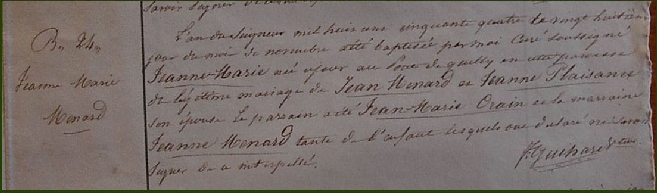 B. 24.
Jeanne Marie
Menard
L'an du Seigneur mil huit cent cinquante quatre le vingt huitième
jour du mois de novembre a été baptisée par moi Curé soussigné
Jeanne-Marie née ce jour au Pont de en cette paroisse
du légitime mariage de Jean Menard et Jeanne Plaisance
son épouse le parrain a été Jean-Marie Orain et la marraine
Jeanne Menard tante de l'enfant lesquels ont déclaré ne savoir
signer de ce interpellé.